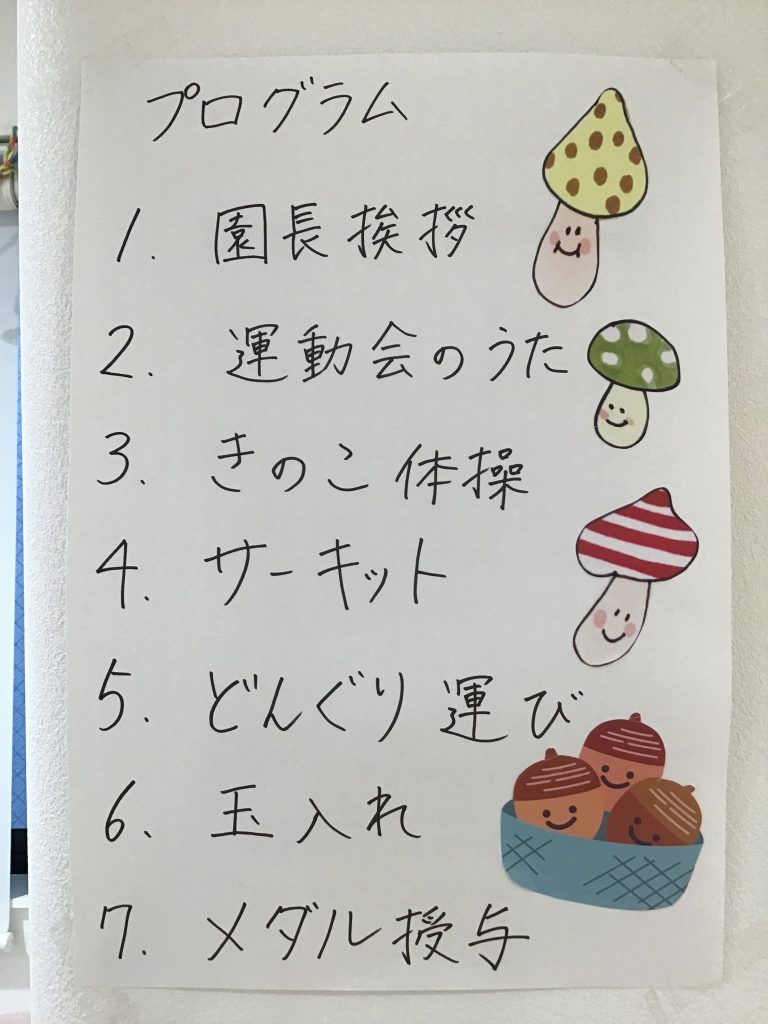 プログラム
1. 園長挨拶
2. 運動会のうた
3. きのこ体操
4. サーキット
5. どんぐり運び
6. 玉入れ
7. メダル授与